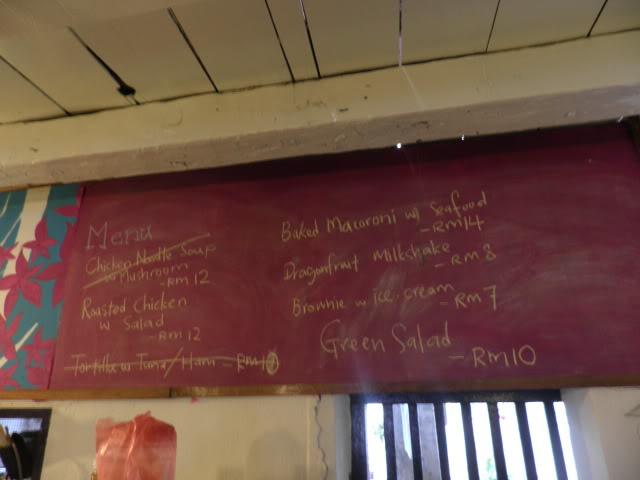 Menu
Chicken Noodle Soup
w Mushroom
- RM 12
Roasted Chicken
w Salad
- RM 12
Tortilla w Tuna/Ham - RM 10
Baked Macaroni w/ Seafood
- RM14
Dragonfruit Milkshake
- RM 8
Brownie w ice-cream
- RM 7
Green Salad
- RM10